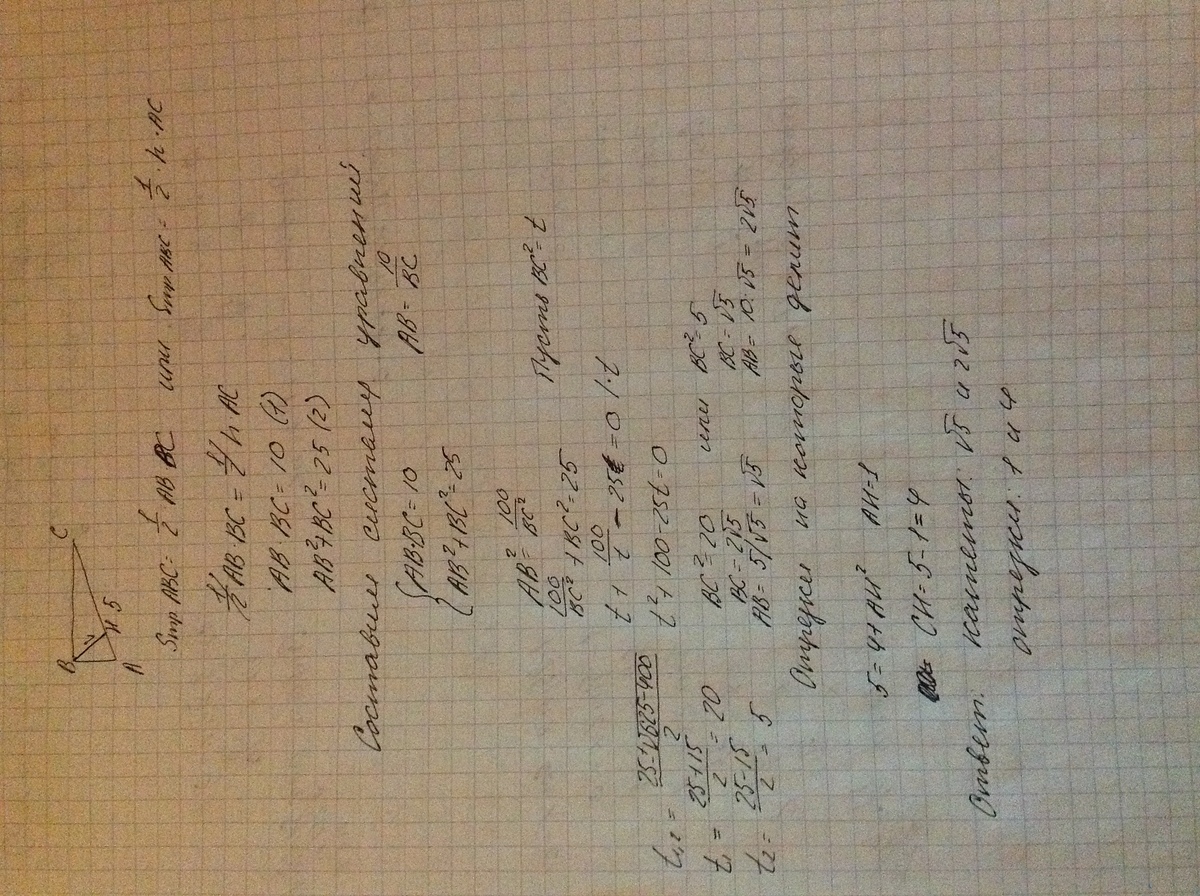 B C
A H 5
Sтр ABC = 1/2 AB BC или Sтр ABC = 1/2 · h · AC
1/2 AB·BC = 1/2 h AC
AB · BC = 10 (1)
AB²+BC² = 25 (2)
Составим систему уравнений
{ AB·BC = 10 AB = 10/BC
AB²+BC² = 25
AB² = 100/BC²
100/BC² + BC² = 25 Пусть BC² = t
t + 100/t - 25 = 0 | · t
t² + 100 - 25t = 0
t₁,₂ = (25 ± √(625-400))/2
t₁ = (25+15)/2 = 20
t₂ = (25-15)/2 = 5
BC² = 20 или BC² = 5
BC = 2√5 BC = √5
AB = 5/√5 = √5 AB = 10:√5 = 2√5
Отрезки на которые делит
5 = 4 + AH² AH = 1
CH = 5 - 1 = 4
Ответ: катеты: √5 и 2√5
отрезки: 1 и 4